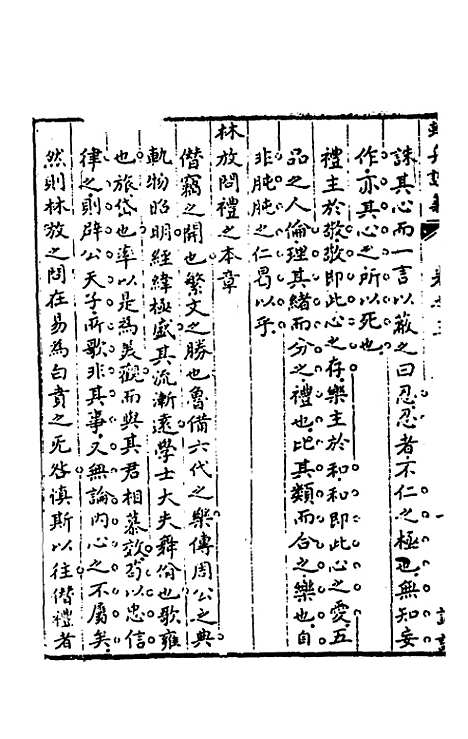 誅其心而一言以蔽之曰忍忍者不仁之極也無知妄
作亦其心之所以死也
禮主於敬敬即此心之存樂主於和和即此心之愛五
品之人倫理其緒而分之禮也比其類而合之樂也自
非肫肫之仁曷以乎
林放問禮之本章
僭竊之開也繁文之勝也魯備六代之樂傳周公之典
軌物昭明經緯極盛其流漸遠學士大夫舞佾也歌雍
也旅岱也率以是為美觀而與其君相慕效茍以忠信
律之則辟公天子所歌非其事又無論内心之不屬矣
然則林放之問在易為白賁之旡咎慎斯以往僭禮者